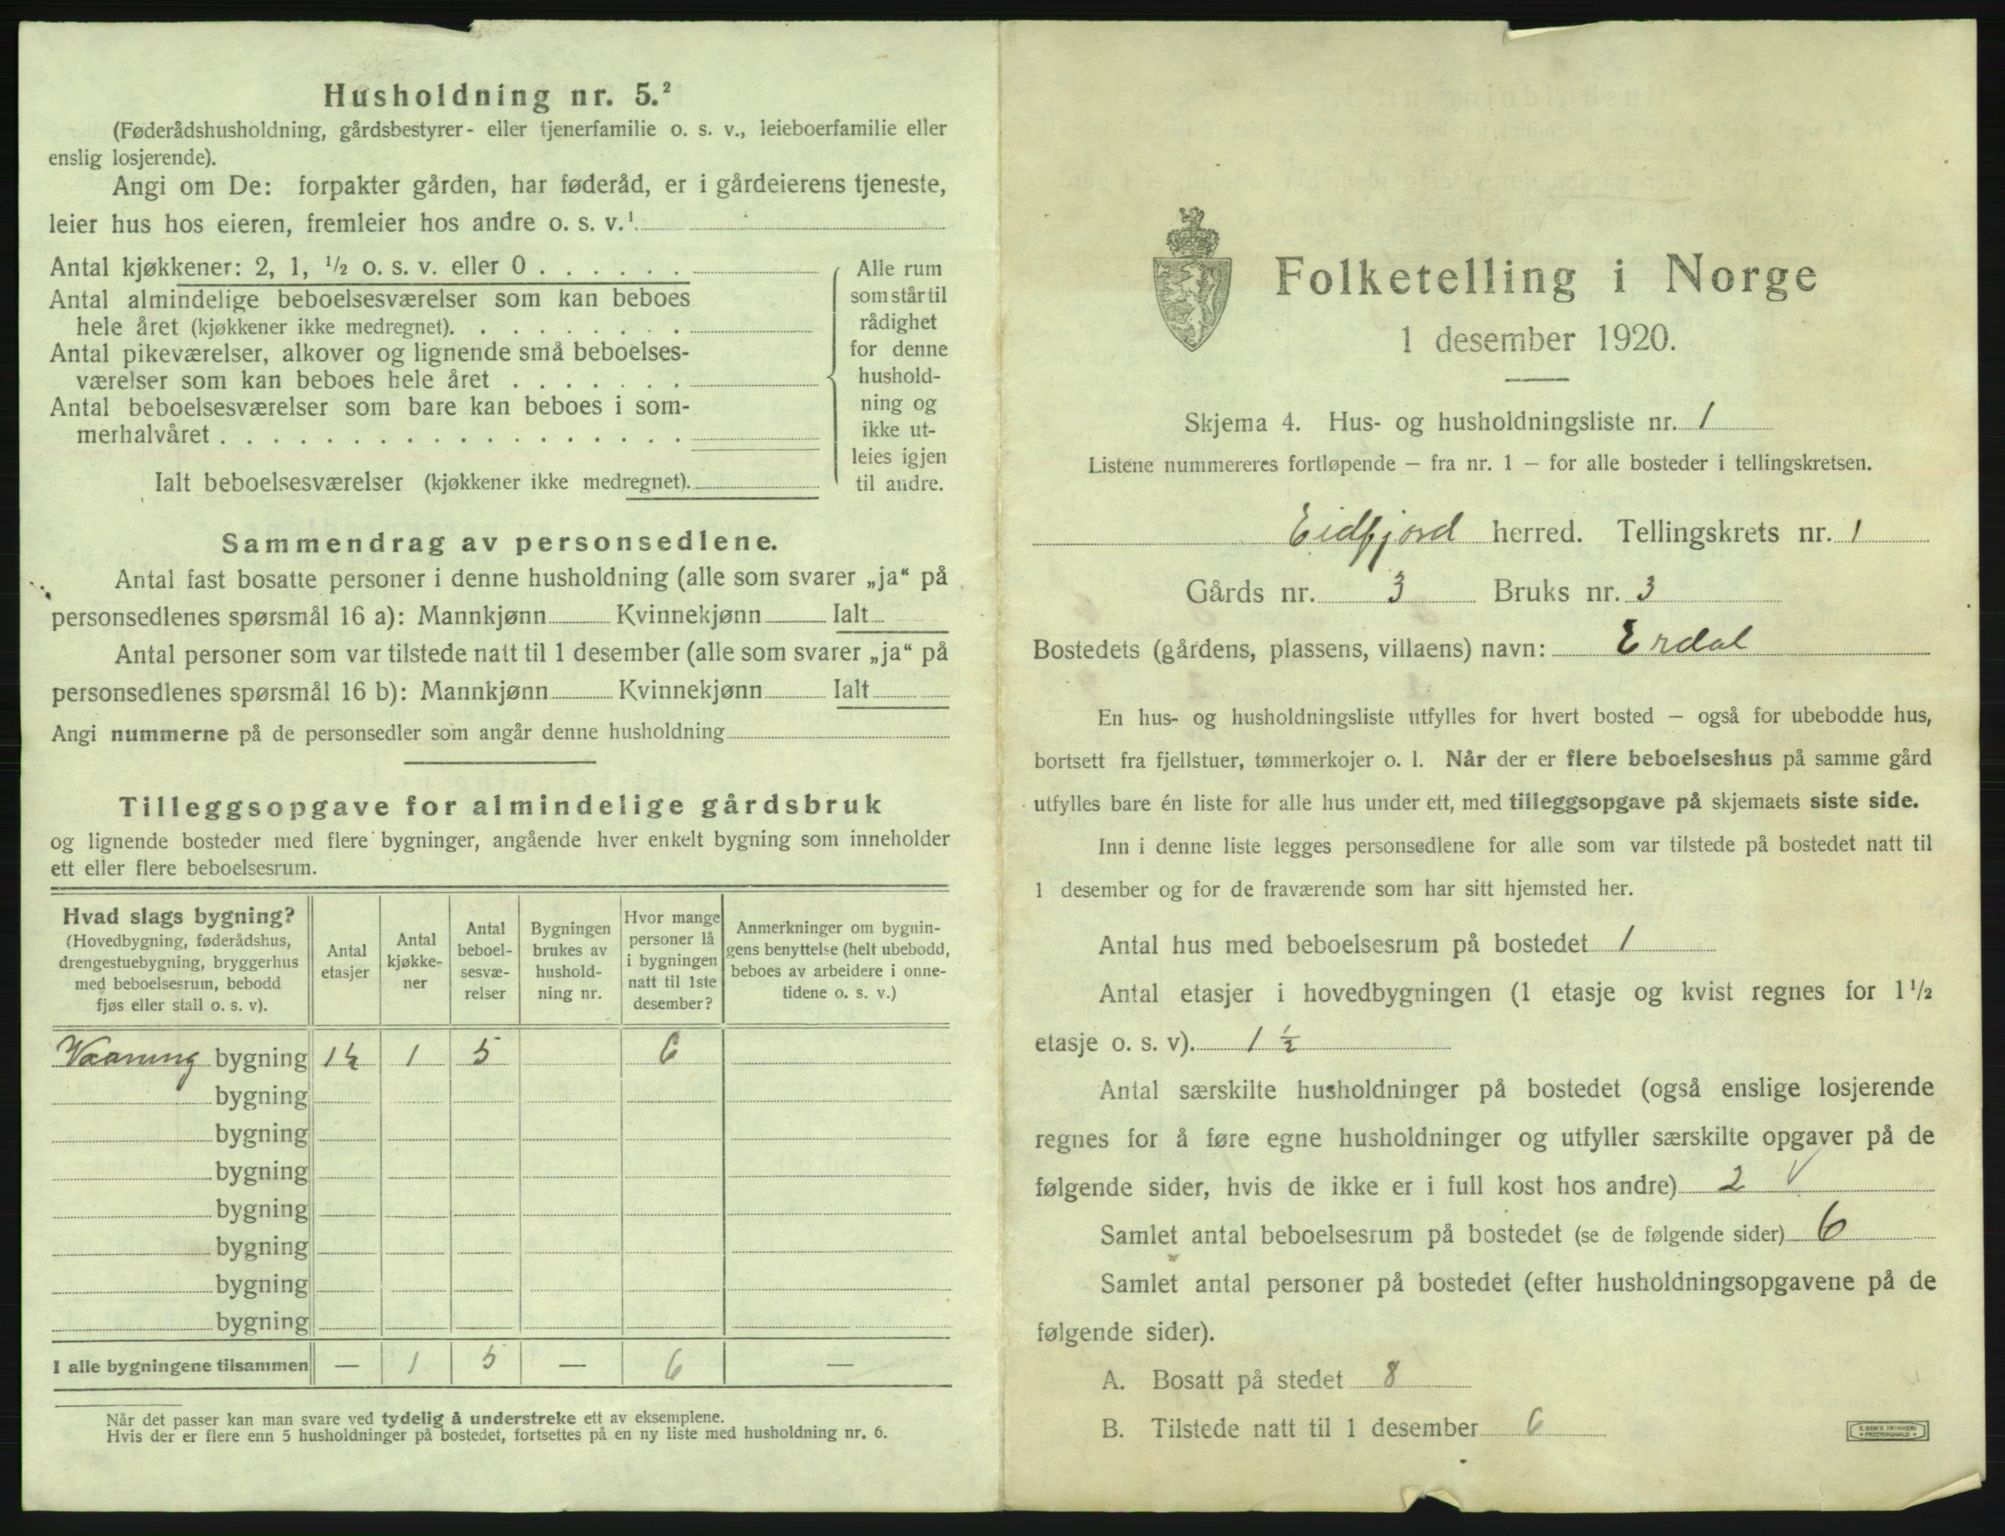 Husholdning nr. 5.²
(Føderådshusholdning, gårdsbestyrer- eller tjenerfamilie o. s. v., leieboerfamilie eller
enslig losjerende).
Angi om De: forpakter gården, har føderåd, er i gårdeierens tjeneste,
leier hus hos eieren, fremleier hos andre o. s. v.¹
Antal kjøkkener: 2, 1, ½ o. s. v. eller 0 . . . . . .
Antal almindelige beboelsesværelser som kan beboes
hele året (kjøkkener ikke medregnet). . . . . . . . .
Antal pikeværelser, alkover og lignende små beboelses-
værelser som kan beboes hele året . . . . . . .
Antal beboelsesværelser som bare kan beboes i som-
merhalvåret . . . . . . . . . . . . . . . . . .
Ialt beboelsesværelser (kjøkkener ikke medregnet).
Alle rum
som står til
rådighet
for denne
hushold-
ning og
ikke ut-
leies igjen
til andre.
Sammendrag av personsedlene.
Antal fast bosatte personer i denne husholdning (alle som svarer „ja“ på
personsedlenes spørsmål 16 a): Mannkjønn Kvinnekjønn Ialt
Antal personer som var tilstede natt til 1 desember (alle som svarer „ja“ på
personsedlenes spørsmål 16 b): Mannkjønn Kvinnekjønn Ialt
Angi nummerne på de personsedler som angår denne husholdning
Tilleggsopgave for almindelige gårdsbruk
og lignende bosteder med flere bygninger, angående hver enkelt bygning som inneholder
ett eller flere beboelsesrum.
Hvad slags bygning?
(Hovedbygning, føderådshus,
drengestuebygning, bryggerhus
med beboelsesrum, bebodd
fjøs eller stall o. s. v).
Antal
etasjer
Antal
kjøkke-
ner
Antal
beboel-
sesvæ-
relser
Bygningen
brukes av
hushold-
ning nr.
Hvor mange
personer lå
i bygningen
natt til 1ste
desember?
Anmerkninger om bygnin-
gens benyttelse (helt ubebodd,
beboes av arbeidere i onne-
tidene o. s. v.)
Vaaning bygning 1½ 1 5 6
bygning
bygning
bygning
bygning
bygning
bygning
bygning
I alle bygningene tilsammen — 1 5 — 6 —
Når det passer kan man svare ved tydelig å understreke ett av eksemplene.
Hvis der er flere enn 5 husholdninger på bostedet, fortsettes på en ny liste med husholdning nr. 6.
Folketelling i Norge
1 desember 1920.
Skjema 4. Hus- og husholdningsliste nr. 1
Listene nummereres fortløpende – fra nr. 1 – for alle bosteder i tellingskretsen.
Eidfjord herred. Tellingskrets nr. 1
Gårds nr. 3 Bruks nr. 3
Bostedets (gårdens, plassens, villaens) navn: Erdal
En hus- og husholdningsliste utfylles for hvert bosted – også for ubebodde hus,
bortsett fra fjellstuer, tømmerkojer o. l. Når der er flere beboelseshus på samme gård
utfylles bare én liste for alle hus under ett, med tilleggsopgave på skjemaets siste side.
Inn i denne liste legges personsedlene for alle som var tilstede på bostedet natt til
1 desember og for de fraværende som har sitt hjemsted her.
Antal hus med beboelsesrum på bostedet 1
Antal etasjer i hovedbygningen (1 etasje og kvist regnes for 1½
etasje o. s. v). 1 ½
Antal særskilte husholdninger på bostedet (også enslige losjerende
regnes for å føre egne husholdninger og utfyller særskilte opgaver på de
følgende sider, hvis de ikke er i full kost hos andre) 2 √
Samlet antal beboelsesrum på bostedet (se de følgende sider) 6
Samlet antal personer på bostedet (efter husholdningsopgavene på de
følgende sider).
A. Bosatt på stedet 8
B. Tilstede natt til 1 desember 6